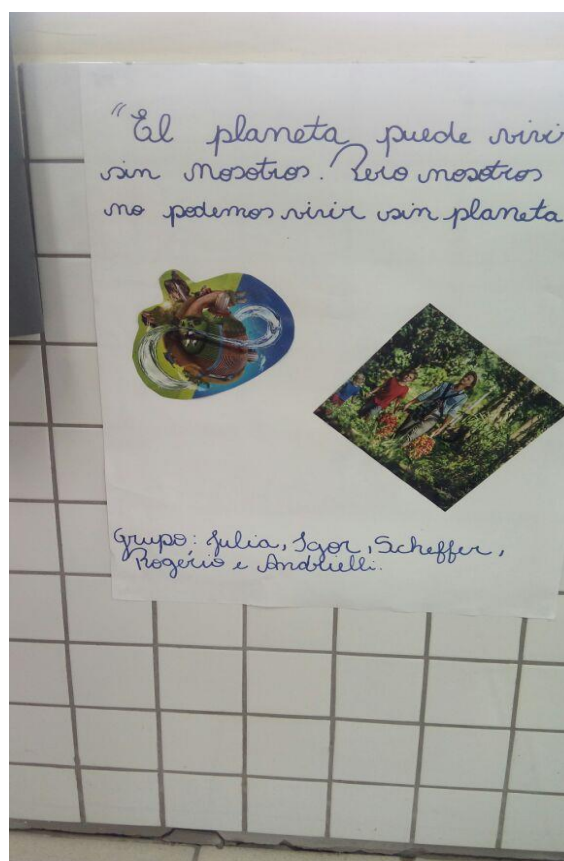 "El planeta puede vivi
sin nosotros. Pero nosotros
no podemos vivir sin planeta
Grupo: Julia, Igor, Scheffer,
Rogério e Andrielli.